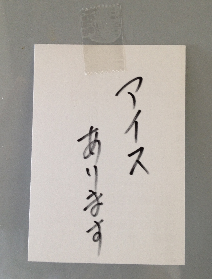 アイス
あります